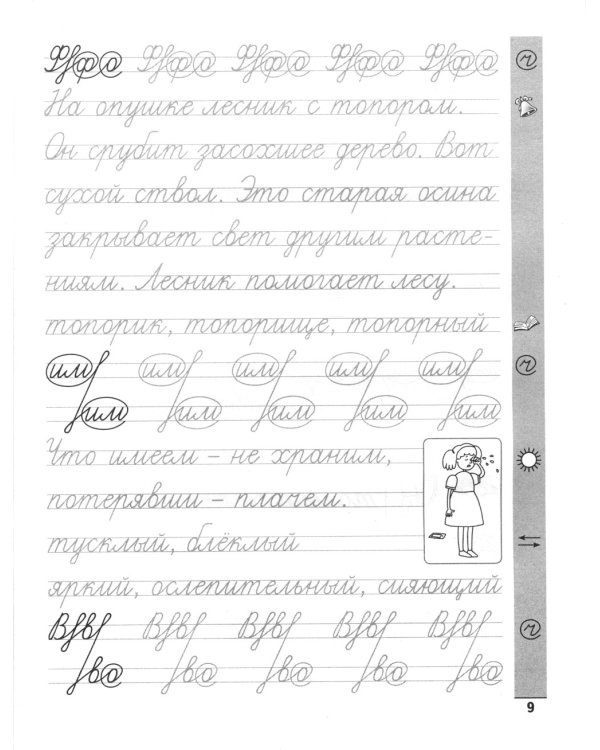 На опушке лесник с топором.
Он срубит засохшее дерево. Вот
сухой ствол. Это старая осина
закрывает свет другим расте-
ниям. Лесник помогает лесу.
топорик, топорище, топорный
им им им им им
им им им им им
Что имеем – не храним,
потерявши – плачем.
тусклый, блёклый
яркий, ослепительный, сияющий
9